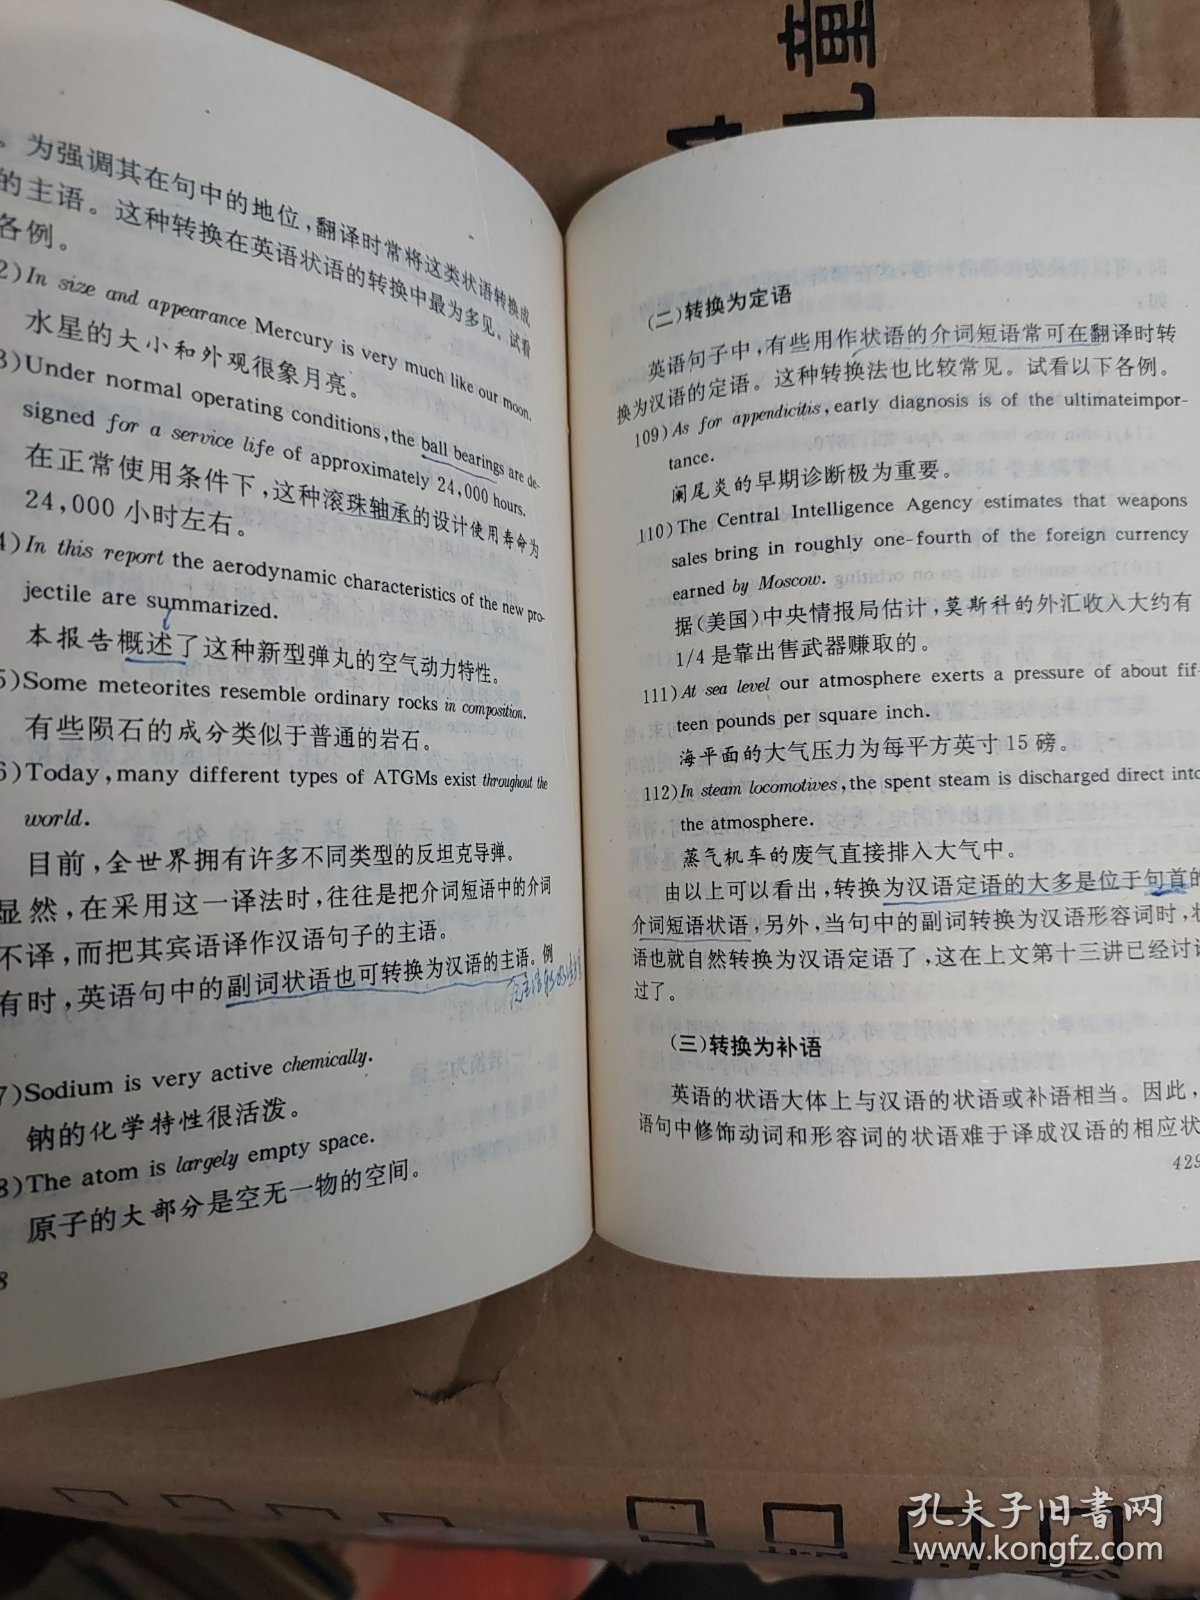 。为强调其在句中的地位，翻译时常将这类状语转换成
的主语。这种转换在英语状语的转换中最为多见。试看
各例。
2)In size and appearance Mercury is very much like our moon.
水星的大小和外观很象月亮。
3)Under normal operating conditions,the ball bearings are de-
signed for a service life of approximately 24,000 hours.
在正常使用条件下，这种滚珠轴承的设计使用寿命为
24,000小时左右。
4)In this report the aerodynamic characteristics of the new pro-
jectile are summarized.
本报告概述了这种新型弹丸的空气动力特性。
5)Some meteorites resemble ordinary rocks in composition.
有些陨石的成分类似于普通的岩石。
6)Today,many different types of ATGMs exist throughout the
world.
目前，全世界拥有许多不同类型的反坦克导弹。
显然，在采用这一译法时，往往是把介词短语中的介词
不译，而把其宾语译作汉语句子的主语。
有时，英语句中的副词状语也可转换为汉语的主语。例
7)Sodium is very active chemically.
钠的化学特性很活泼。
8)The atom is largely empty space.
原子的大部分是空无一物的空间。
8
(二)转换为定语
英语句子中，有些用作状语的介词短语常可在翻译时转
换为汉语的定语。这种转换法也比较常见。试看以下各例。
109)As for appendicitis,early diagnosis is of the ultimateimpor-
tance.
阑尾炎的早期诊断极为重要。
110)The Central Intelligence Agency estimates that weapons
sales bring in roughly one-fourth of the foreign currency
earned by Moscow.
据(美国)中央情报局估计，莫斯科的外汇收入大约有
1/4是靠出售武器赚取的。
111)At sea level our atmosphere exerts a pressure of about fif-
teen pounds per square inch.
海平面的大气压力为每平方英寸15磅。
112)In steam locomotives,the spent steam is discharged direct into
the atmosphere.
蒸气机车的废气直接排入大气中。
由以上可以看出，转换为汉语定语的大多是位于句首的
介词短语状语，另外，当句中的副词转换为汉语形容词时，状
语也就自然转换为汉语定语了，这在上文第十三讲已经讨论
过了。
(三)转换为补语
英语的状语大体上与汉语的状语或补语相当。因此，
语句中修饰动词和形容词的状语难于译成汉语的相应状
429
孔夫子旧书网
www.kongfz.com